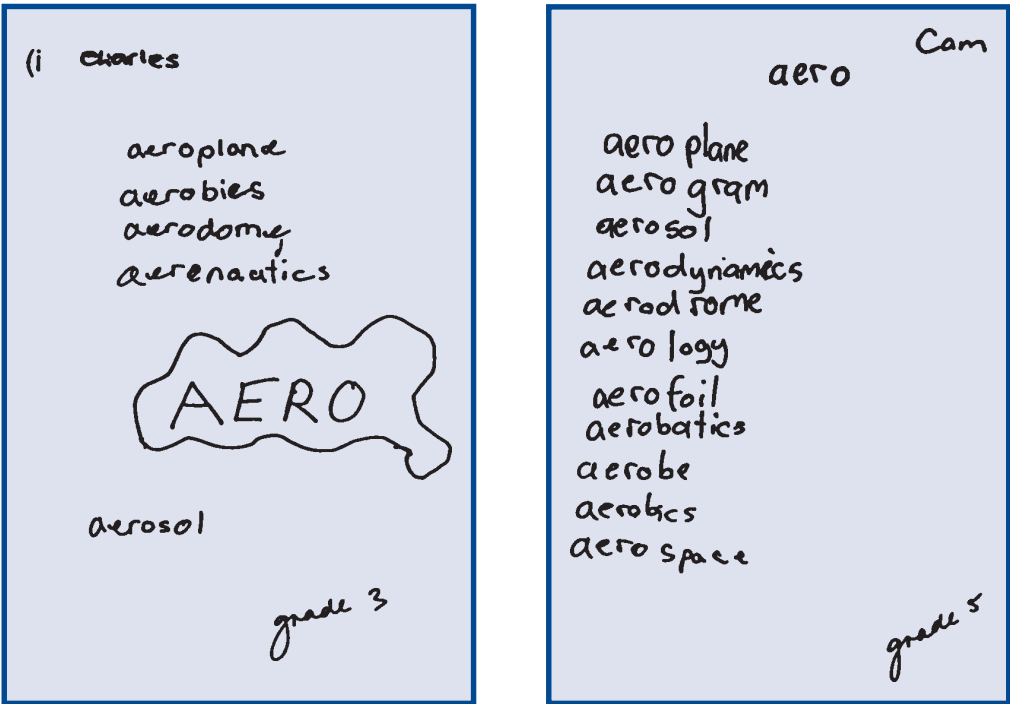 (i Charles
aeroplane
aerobies
aerodome
aerenautics
AERO
aerosol
grade 3
Cam
aero
aero plane
aero gram
aerosol
aerodyniamics
aerodrome
aerology
aerofoil
aerobatics
aerobe
aerobics
aero space
grade 5